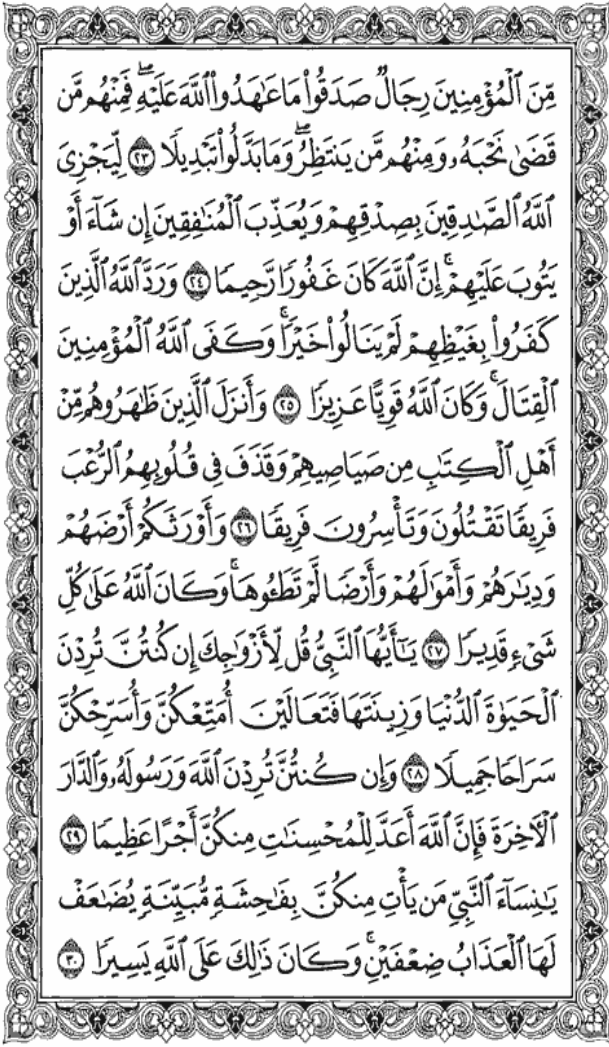 مِّنَ ٱلْمُؤْمِنِينَ رِجَالٌ صَدَقُوا۟ مَا عَٰهَدُوا۟ ٱللَّهَ عَلَيْهِ ۖ فَمِنْهُم مَّن
قَضَىٰ نَحْبَهُۥ وَمِنْهُم مَّن يَنتَظِرُ ۖ وَمَا بَدَّلُوا۟ تَبْدِيلًا ٢٣ لِّيَجْزِىَ
ٱللَّهُ ٱلصَّٰدِقِينَ بِصِدْقِهِمْ وَيُعَذِّبَ ٱلْمُنَٰفِقِينَ إِن شَآءَ أَوْ
يَتُوبَ عَلَيْهِمْ ۚ إِنَّ ٱللَّهَ كَانَ غَفُورًا رَّحِيمًا ٢٤ وَرَدَّ ٱللَّهُ ٱلَّذِينَ
كَفَرُوا۟ بِغَيْظِهِمْ لَمْ يَنَالُوا۟ خَيْرًا ۚ وَكَفَى ٱللَّهُ ٱلْمُؤْمِنِينَ
ٱلْقِتَالَ ۚ وَكَانَ ٱللَّهُ قَوِيًّا عَزِيزًا ٢٥ وَأَنزَلَ ٱلَّذِينَ ظَٰهَرُوهُم مِّنْ
أَهْلِ ٱلْكِتَٰبِ مِن صَيَاصِيهِمْ وَقَذَفَ فِى قُلُوبِهِمُ ٱلرُّعْبَ
فَرِيقًا تَقْتُلُونَ وَتَأْسِرُونَ فَرِيقًا ٢٦ وَأَوْرَثَكُمْ أَرْضَهُمْ
وَدِيَٰرَهُمْ وَأَمْوَٰلَهُمْ وَأَرْضًا لَّمْ تَطَـُٔوهَا ۚ وَكَانَ ٱللَّهُ عَلَىٰ كُلِّ
شَىْءٍ قَدِيرًا ٢٧ يَٰٓأَيُّهَا ٱلنَّبِىُّ قُل لِّأَزْوَٰجِكَ إِن كُنتُنَّ تُرِدْنَ
ٱلْحَيَوٰةَ ٱلدُّنْيَا وَزِينَتَهَا فَتَعَالَيْنَ أُمَتِّعْكُنَّ وَأُسَرِّحْكُنَّ
سَرَاحًا جَمِيلًا ٢٨ وَإِن كُنتُنَّ تُرِدْنَ ٱللَّهَ وَرَسُولَهُۥ وَٱلدَّارَ
ٱلْءَاخِرَةَ فَإِنَّ ٱللَّهَ أَعَدَّ لِلْمُحْسِنَٰتِ مِنكُنَّ أَجْرًا عَظِيمًا ٢٩
يَٰنِسَآءَ ٱلنَّبِىِّ مَن يَأْتِ مِنكُنَّ بِفَٰحِشَةٍ مُّبَيِّنَةٍ يُضَٰعَفْ
لَهَا ٱلْعَذَابُ ضِعْفَيْنِ ۚ وَكَانَ ذَٰلِكَ عَلَى ٱللَّهِ يَسِيرًا ٣٠